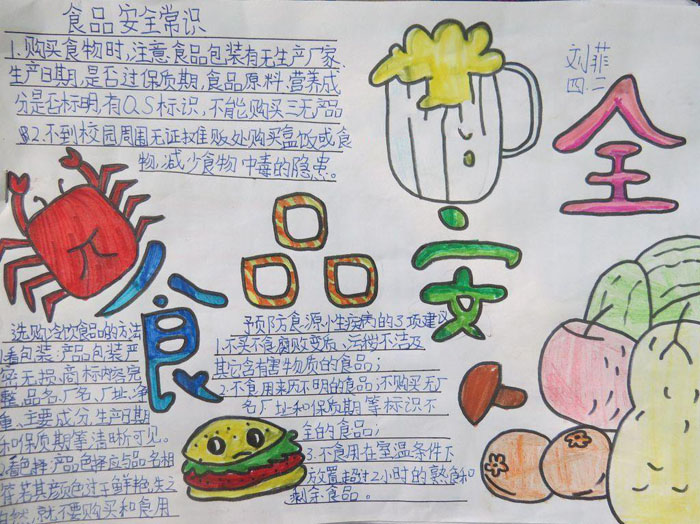 食品安全常识
1.购买食物时,注意食品包装有无生产厂家、
生产日期,是否过保质期,食品原料、营养成
分是否标明,有QS标识,不能购买三无产品
2.不到校园周围无证摊贩处购买盒饭或食
物,减少食物中毒的隐患。
刘菲
四二
食品安全
选购冷饮食品的方法
1看包装:产品包装严
密无损,商标内容完
整,品名、厂名、厂址、净
重、主要成分、生产日期
和保质期等清晰可见。
2.看色择:产品色择应与品名相
符,若其颜色过于鲜艳,失之
自然,就不要购买和食用
予预防食源小生疾病的3项建议
1.不买不食腐败变质、污秽不洁及
其它含有害物质的食品;
2.不食用来历不明的食品;不购买无厂
名厂址和保质期等标识不
全的食品;
3.不食用在室温条件下
放置超过2小时的熟食和
剩余食品。